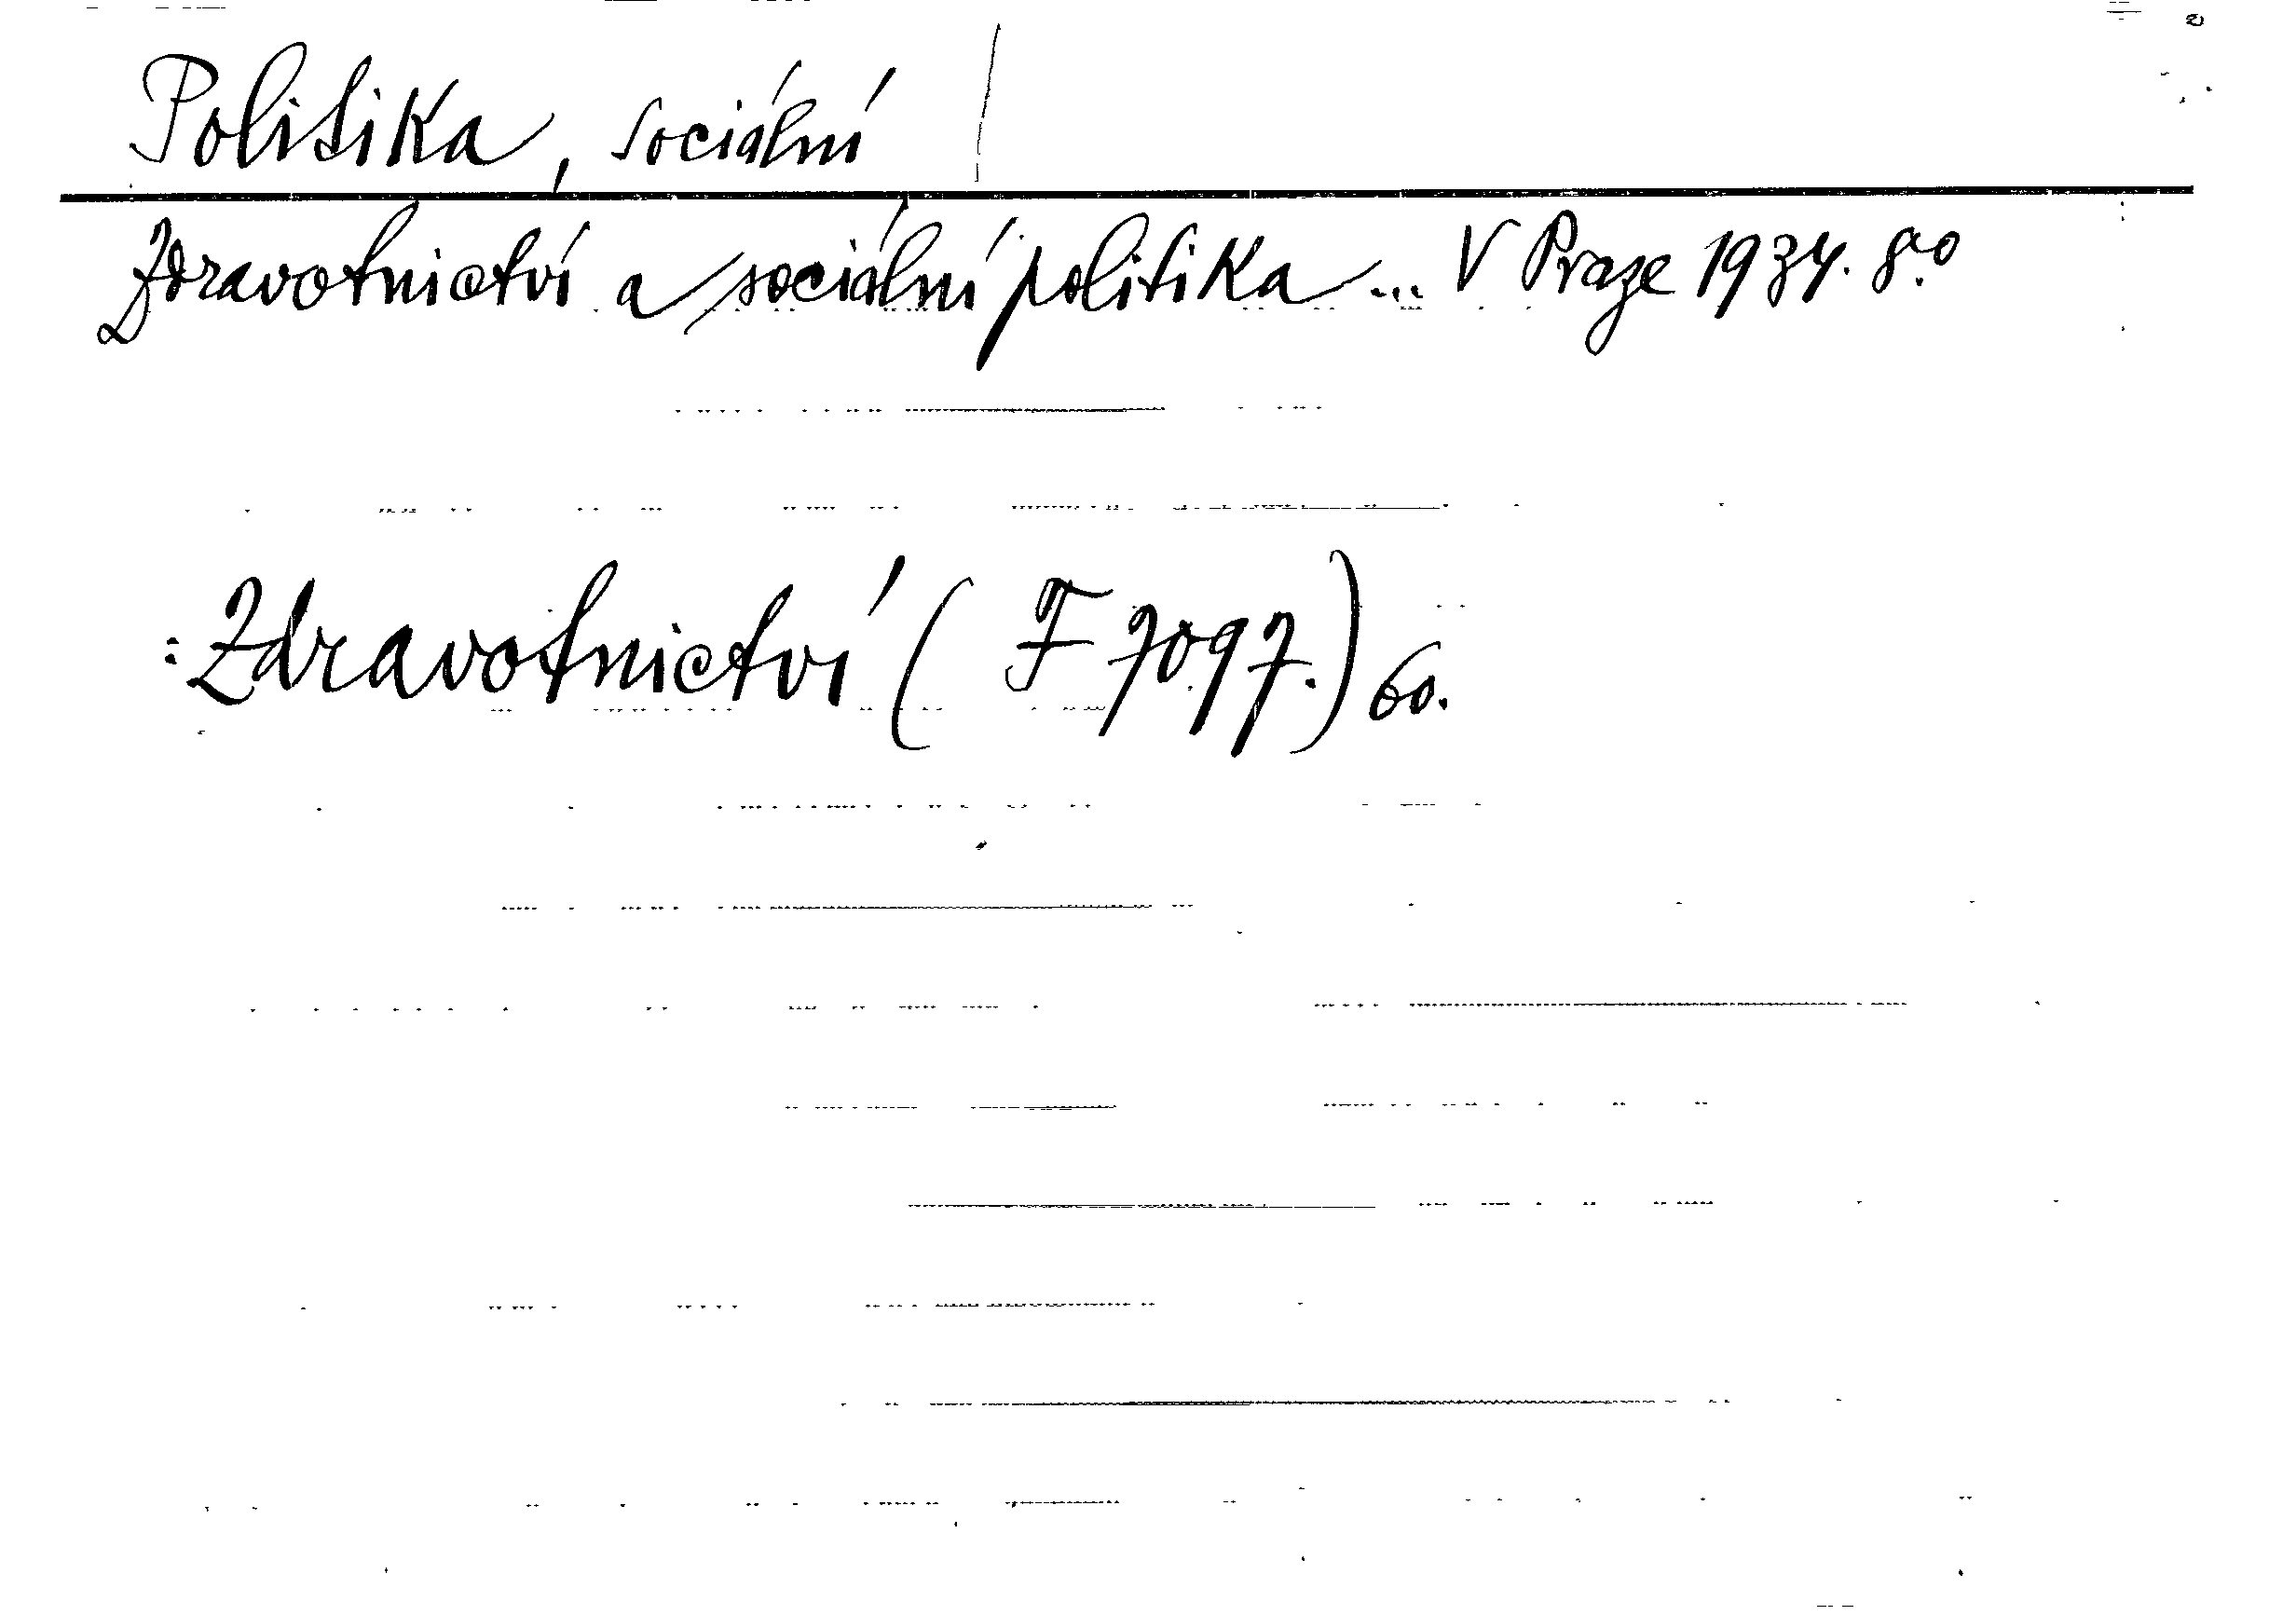 Politika, sociální
Zdravotnictví a sociální politika ... V Praze 1934. 8.o
: Zdravotnictví ( F 7097.) 60.